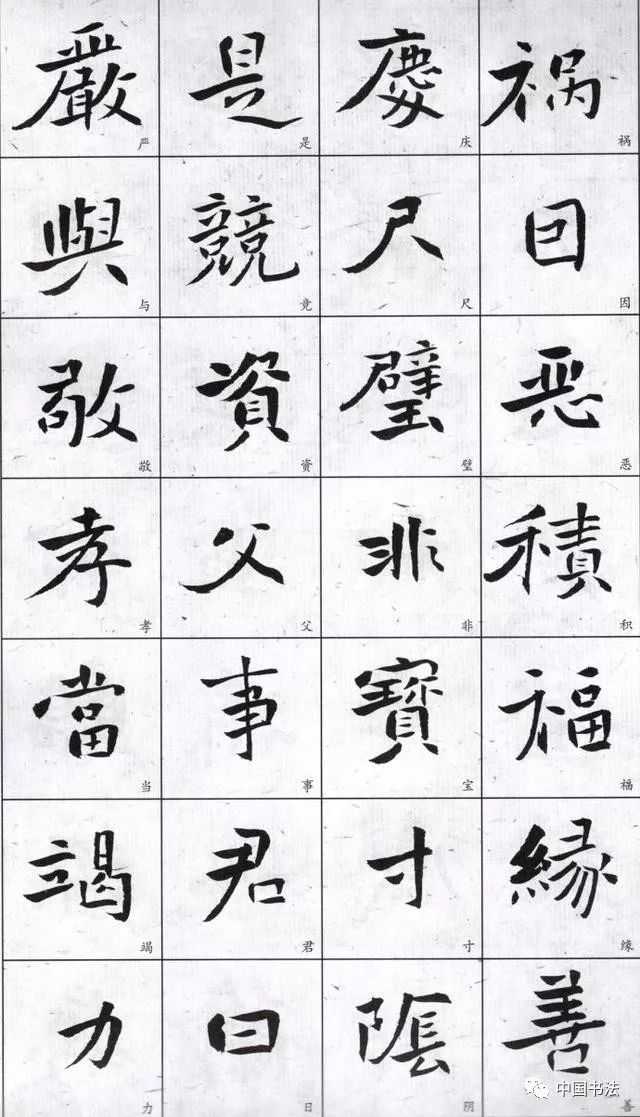 祸囙恶積福緣善
祸因恶积福缘善
慶尺璧非寶寸陰
庆尺璧非宝寸阴
是競資父事君曰
是竞资父事君日
嚴與敬孝當竭力
严与敬孝当竭力
中国书法